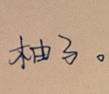 柚子。